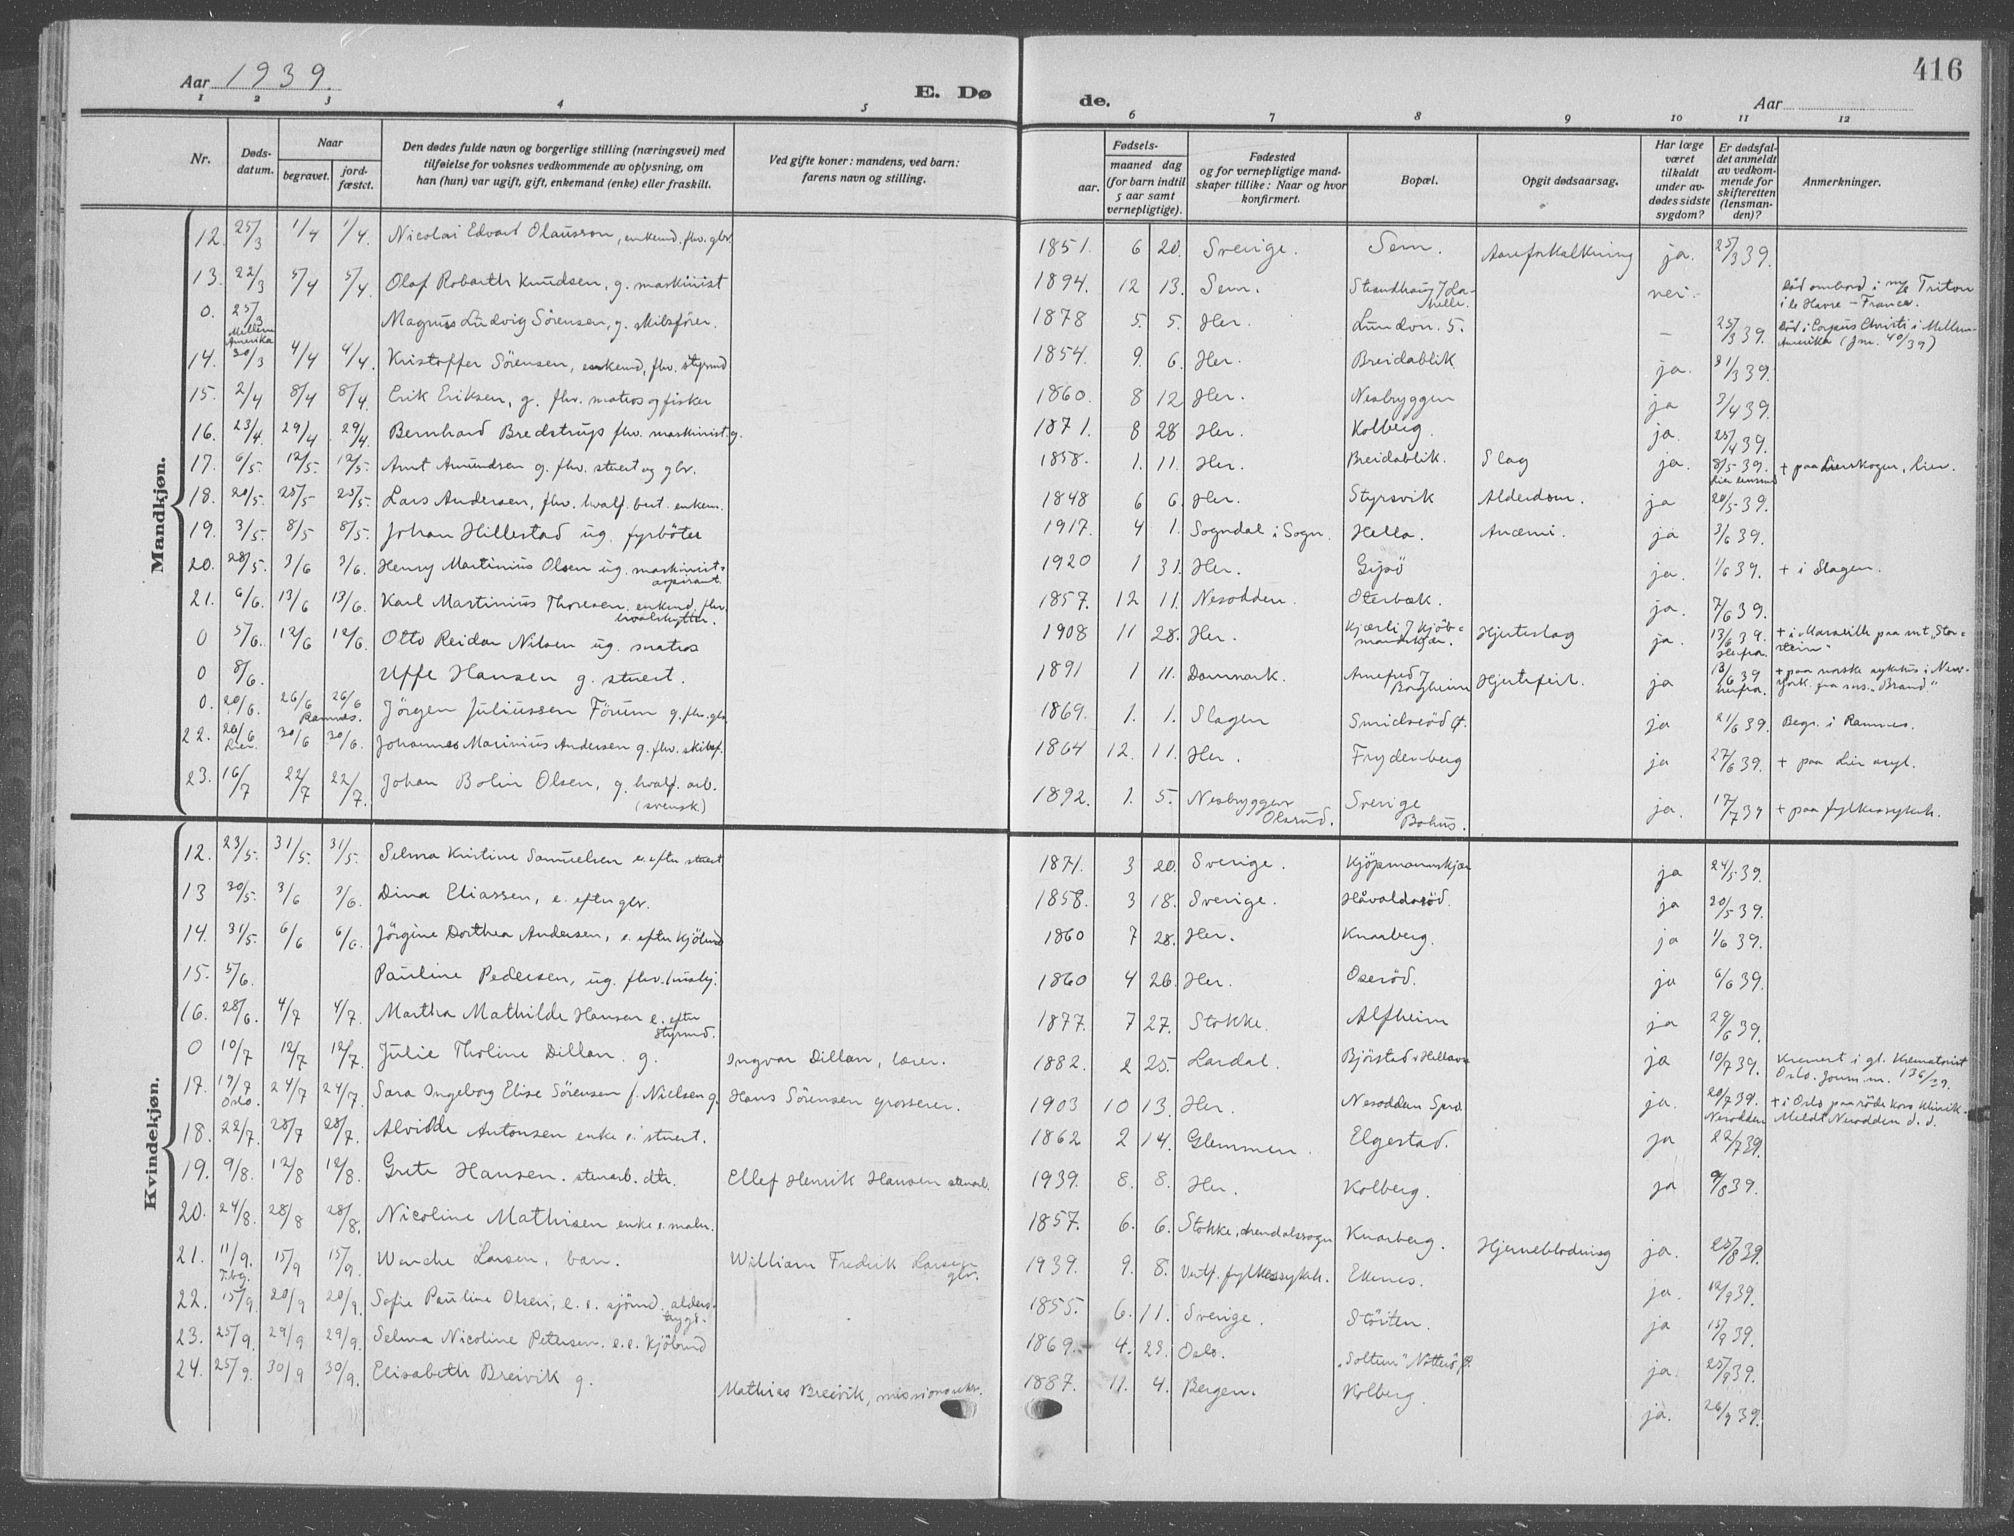 416
Aar 1939.
E. Dø
de.
Aar
1 2 3 4 5 6 7 8 9 10 11 12
Nr.
Døds-
datum.
Naar
begravet.
jord-
fæstet.
Den dødes fulde navn og borgerlige stilling (næringsvei) med
tilføielse for voksnes vedkommende av oplysning, om
han (hun) var ugift, gift, enkemand (enke) eller fraskilt.
Ved gifte koner: mandens, ved barn:
farens navn og stilling.
Fødsels-
aar.
maaned dag
(for barn indtil
5 aar samt
vernepligtige).
Fødested
og for vernepligtige mand-
skaper tillike: Naar og hvor
konfirmert.
Bopæl.
Opgit dødsaarsag.
Har læge
været
tilkaldt
under av-
dødes sidste
sygdom?
Er dødsfal-
det anmeldt
av vedkom-
mende for
skifteretten
(lensman-
den)?
Anmerkninger.
Mandkjøn.
12. 25/3 1/4 1/4. Nicolai Edvard Olausson, enkemd. fhv. gbr. 1851. 6 20. Sverige. Sem. Aareforkalkning ja. 25/3 39.
13. 22/3 5/4 5/4. Olaf Robarth Knudsen, g. maskinist 1894. 12 13. Sem. Strandhaug nei. Død ombord i m/s Triton
i le Havre - France.
0. 25/3 Mellem Amerika Magnus Ludvig Sörensen, g. skibsförer. 1878 5. 5. Her. Lundvn. 5. - 25/3 39. Död i Corpus Christi i Mellem-
Amerika (jnr. 40/39)
14. 30/3 4/4 4/4. Kristoffer Sörensen, enkemd, fhv. styrmd 1854. 9. 6. Her. Breidablik ja. 31/3 39.
15. 2/4 8/4 8/4. Erik Eriksen, g. fhv. matros og fisker 1860. 8 12 Her. Nesbryggen ja 3/4 39.
16. 23/4. 29/4 29/4. Bernhard Bredstrup fhv. maskinist. g. 1871. 8 28 Her. Kolberg. ja. 25/4 39.
17. 6/5. 12/5 12/5. Arnt Amundsen g. fhv. stuert og gbr. 1858. 1. 11. Her. Breidablik. Slag ja. 8/5 39. + paa Lierskogen, Lier.
18. 20/5. 25/5 25/5. Lars Andersen, fhv. hvalf. best. enkem. 1848 6 6. Her. Styrsvik Alderdom. ja 20/5 39.
19. 3/5. 8/5 8/5. Johan Hillestad ug. fyrböter 1917. 4 1. Sogndal i Sogn. Hella. Anæmi. ja 3/6 39.
20. 28/5. 3/6 3/6. Henry Martinius Olsen ug. maskinist-
aspirant. 1920 1 31. Her. Gipö ja. 1/6 39. + i Slagen.
21. 6/6. 13/6 13/6. Karl Martinius Thoresen. enkemd. fhv.
hvalskytter. 1857. 12 11. Nesodden. Oterbæk. ja. 7/6 39.
0 5/6. 12/6 12/6. Otto Reidar Nilsen ug. matros 1908 11 28. Her. Kjærli Hjerteslag ja. 13/6 39. + i Marseille paa mt "Stor-
stein"
0 8/6. Uffe Hansen g. stuert. 1891 1 11. Danmark. Borgheim Hjertefeil. ja 13/6 39 + paa norske sykehus i New-
York. fra ms. "Brand."
0. 20/6. 26/6 26/6 Ramnes. Jörgen Juliussen Förum g. fhv. gbr. 1869. 1. 1. Slagen Smidsröd ja 21/6 39. Begr. i Ramnes.
22. 26/6 Lier. 30/6 30/6. Johannes Marinius Andersen g. fhv. skibsf. 1864 12. 11. Her. Frydenberg ja 27/6 39. + paa Lier asyl.
23. 16/7 22/7 22/7. Johan Bolin Olsen, g. hvalf. arb.
(svensk) 1892. 1. 5. Nesbryggen
Olsrud. Sverige
Bohus. ja. 17/7 39 + paa fylkessykeh.
Kvindekjøn.
12. 23/5. 31/5. 31/5. Selma Kristine Samuelsen e. efter stuert 1871. 3 20. Sverige. Kjöpmannskjær ja 24/5 39.
13 30/5. 3/6 3/6. Dina Eliassen, e. efter gbr. 1858. 3 18. Sverige. Håvaldsröd. ja 20/5 39.
14. 31/5. 6/6 6/6. Jörgine Dorthea Andersen, e. efter kjöbmd 1860 7 28. Her. Knarberg. ja 1/6 39.
15. 5/6. Pauline Pedersen, ug. fhv. husbj. 1860 4 26. Her. Oseröd. ja 6/6 39.
16. 28/6. 4/7 4/7. Martha Mathilde Hansen e. efter
styrmd. 1877. 7 27. Stokke. Alfheim ja 29/6 39.
0 10/7 12/7 12/7. Julie Tholine Dillan. g. Ingvar Dillan, lærer. 1882. 2 25. Lardal. Björstad ja 10/7 39. Kremert i gl. Krematoriet
Oslo. Journ. nr. 136/39.
17. 19/7 Oslo. 24/7 24/7. Sara Ingeborg Elise Sörensen f. Nielsen g. Hans Sörensen grosserer. 1903 10 13. Her. Nesodden ja. 20/7 39. Nesodden + i Oslo paa röde kors klinik.
Meldt Nesodden d. d.
18. 22/7. 28/7 28/7. Alvilde Antonsen enke e. stuert. 1862 2 14. Glemmen. Elgestad. ja 22/7 39.
19. 9/8. 12/8 12/8. Grete Hansen. stenarb. dtr. Ellef Henrik Hansen stenarb. 1939. 8. 8. Her. Kolberg. ja 9/8 39.
20. 24/8. 28/8 28/8. Nicoline Mathisen enke e. maler. 1857. 6. 6. Stokke, Arendalssogn Knarberg. Hjerneblödning ja. 25/8 39.
21. 11/9. Tbg. 15/9 15/9. Wenche Larsen, barn. William Fredrik Larsen
gbr. 1939. 9. 8. Vestf. fylkessykeh. Ekenes. ja. 12/9 39.
22. 15/9. 20/9 20/9. Sofie Pauline Olsen, e. e. sjömd. alders-
trygd. 1855. 6. 11. Sverige. Stöiten. ja 15/9 39.
23. 25/9. 29/9 29/9. Selma Nicoline Petersen. e. e. kjöbmd 1869. 4. 29. Oslo. "Soltun" Nötterö ja. 25/9 39.
24. 25/9. 30/9 30/9. Elisabeth Breivik g. Mathias Breivik, missionssekr. 1887. 11. 4. Bergen. Kolberg. ja. 26/9 39.